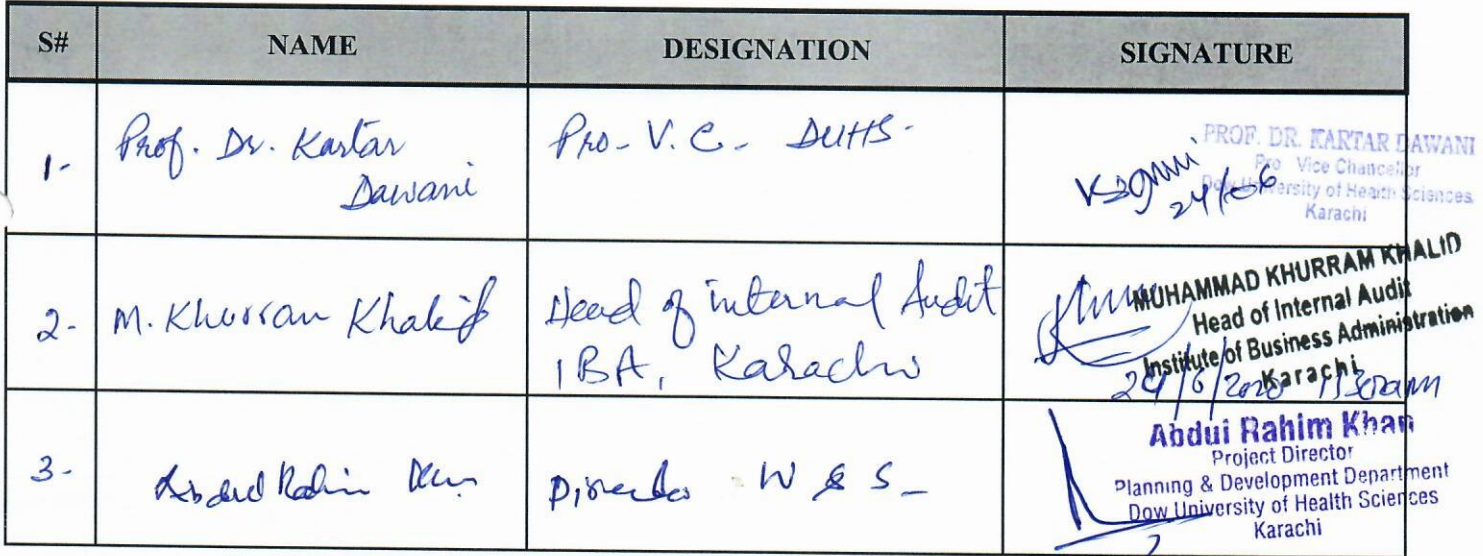 S# NAME DESIGNATION SIGNATURE
1- Prof. Dr. Kartar Pro- V. C. - DUHS-
Dawani
24/06
PROF. DR. KARTAR DAWANI
Pro Vice Chancellor
Dow University of Health Sciences
Karachi
2- M. Khurram Khalid Head of internal Audit
IBA, Karachi
MUHAMMAD KHURRAM KHALID
Head of Internal Audit
Institute of Business Administration
Karachi
24/6/2020 1130am
3- Abdul Rahim Khan Director W & S -
Abdul Rahim Khan
Project Director
Planning & Development Department
Dow University of Health Sciences
Karachi